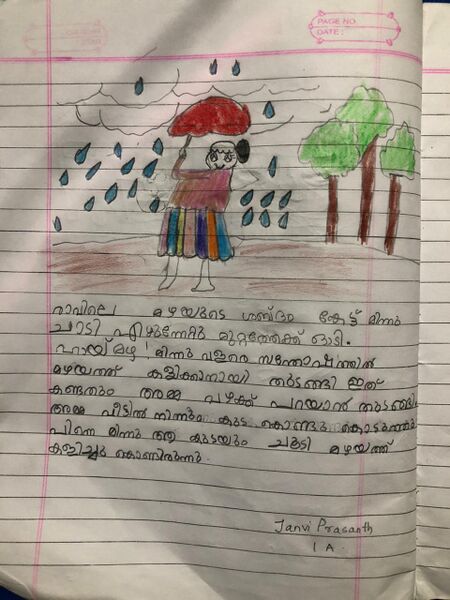 PAGE NO.
DATE:
രാവിലെ മഴയുടെ ശബ്ദം കേട്ട് മിന്നു
ചാടി എഴുന്നേറ്റു മുറ്റത്തേക്ക് ഓടി.
ഹായ് മഴ! മിന്നു വളരെ സന്തോഷത്തിൽ
മഴയത്ത് കളിക്കാനായി തുടങ്ങി ഇത്
കണ്ടതും അമ്മ വഴക്ക് പറയാൻ തുടങ്ങി.
അമ്മ വീട്ടിൽ നിന്നും കുട കൊണ്ടു കൊടുത്തു
പിന്നെ മിന്നു ആ കുടയും ചൂടി മഴയത്ത്
കളിച്ചു കൊണ്ടിരുന്നു.
Janvi Prasanth
I A